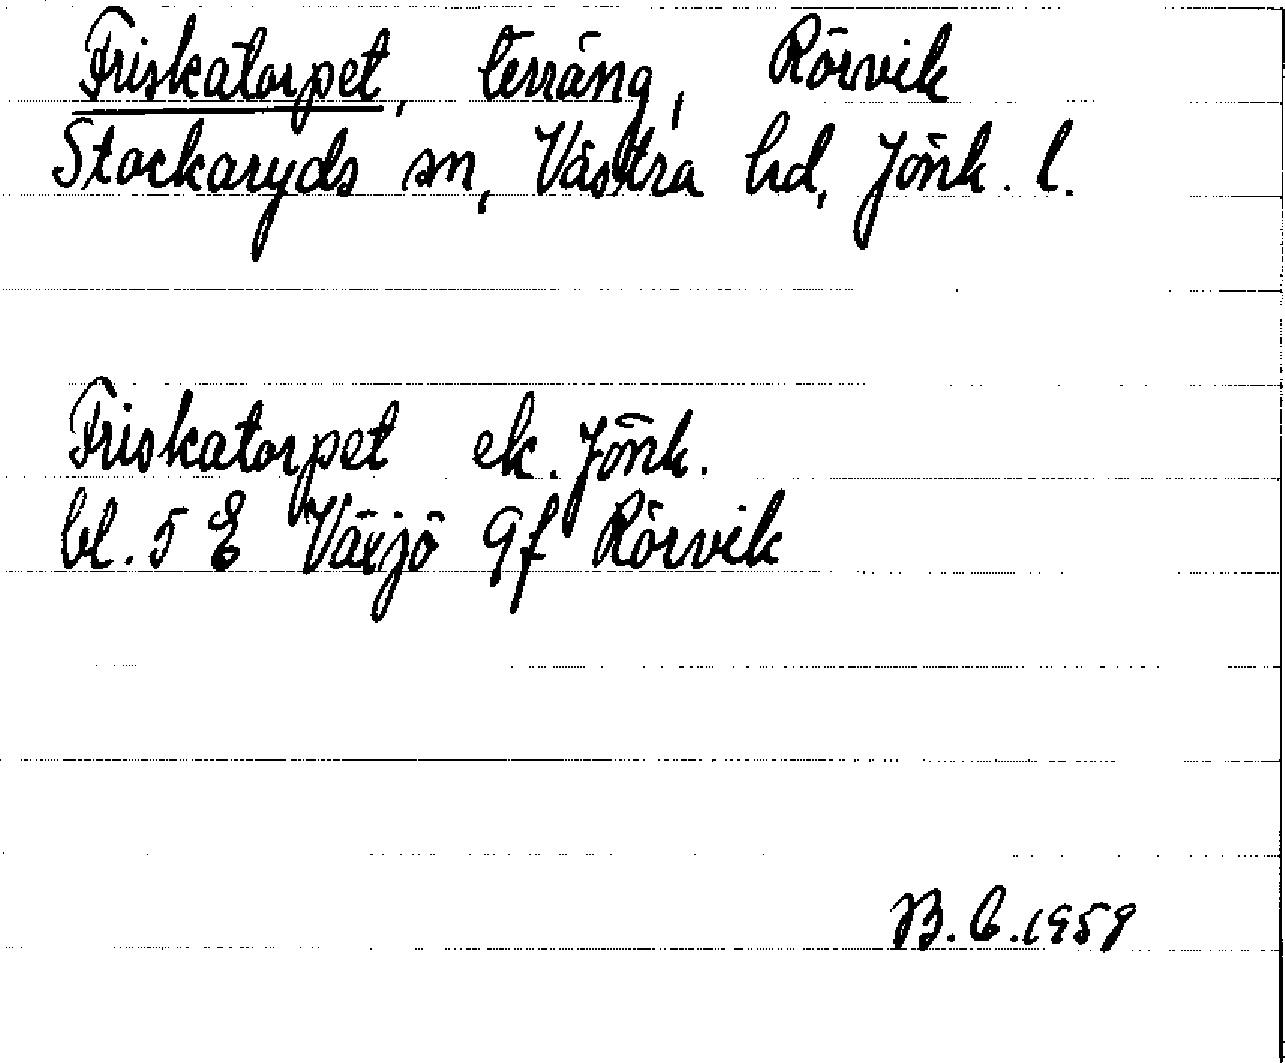 Friskatorpet, terräng, Rörvik
Stockaryds sn, Västra hd, Jönk. l.
Friskatorpet ek. Jönk.
bl. 5 E Växjö 9f Rörvik
B. E. 1959